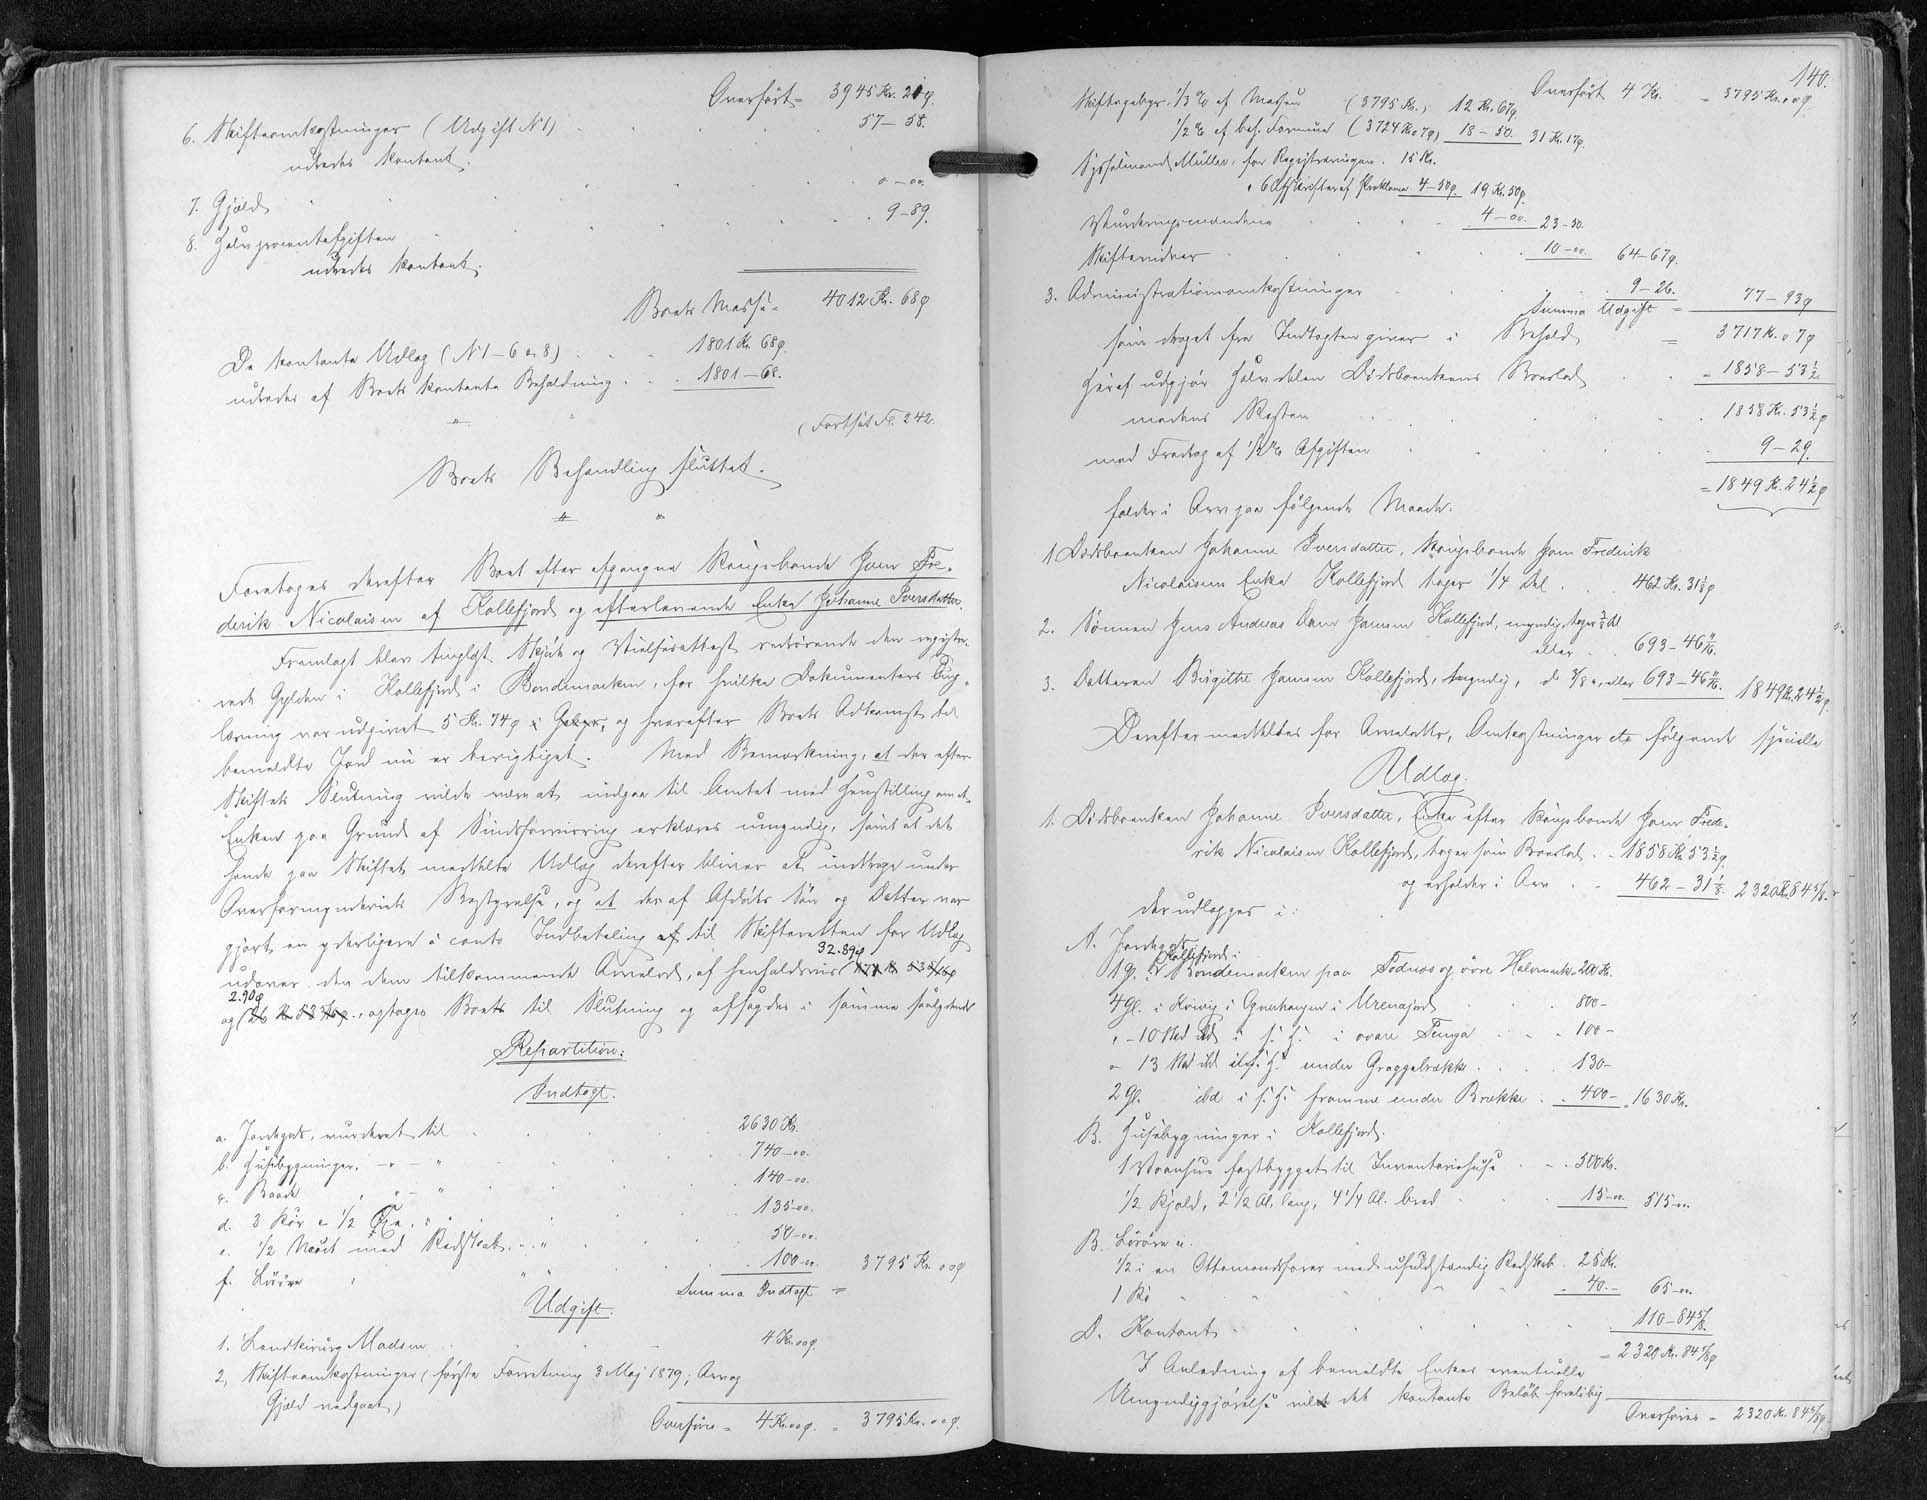 Overført = 3945 Kr. 21 ø.
6. Skifteomkostninger (Udgift N 1) 57 — 58.
udredes kontant.
7. Gjæld 0 — 00.
8. Halvprocentafgiften 9 — 89.
udredes kontant.
Boets Masse = 4012 Kr. 68 ø
De kontante Udlæg (N 1 — 6 og 8) 1801 Kr. 68 ø.
udredes af Boets kontante Beholdning 1801 — 68.
(Fortsat Fol. 242.
Boets Behandling sluttet.
Foretoges derefter Boet efter afgangne Kongsbonde Joen Fre-
derik Nicolaisen af Kollefjord og efterlevende Enke Johanne Iversdatter.
Fremlagt blev tinglyst Skjøde og Vielsesattest vedrørende den registe-
rede Gylden i Kollefjord i Bøndemarken, for hvilke Dokumenters Ting-
læsning var udgivet 5 Kr. 74 ø i Gebyr, og hvorefter Boets Adkomst til
bemeldte Jord nu er berigtiget. Med Bemærkning, at der efter
Skiftets Slutning vilde være at indgaa til Amtet med Henstilling om at
Enken paa Grund af Sindsforvirring erklæres umyndig, samt at det
hende paa Skiftet meddelte Udlæg derefter bliver at inddrage under
Overformynderiets Bestyrelse, og at der af Afdødes Søn og Datter var
gjort en yderligere à conto Indbetaling af til Skifteretten for Udlæg
32.89 ø
udover den dem tilkommende Arvelod, af henholdsvis
2.90 ø
og , optoges Boet til Slutning og afsagdes i samme saalydende
Repartition:
Indtægt.
a. Jordegods, vurderet til 2630 Kr.
b. Husebygninger, — " — " 740 — 00.
c. Baade " — " 140 — 00.
d. 3 Køer a 1/2 " 135 — 00.
e. 1/2 med Redskab " 50 — 00.
f. Løsøre " " 100 — 00. 3795 Kr. 00 ø
Summa Indtægt =
Udgift.
1. Landkirurg Madsen 4 Kr. 00 ø.
2, Skifteomkostninger (første Forretning 3 Maj 1879; Arv og
Gjæld vedgaaet,)
Overføres = 4 Kr. 00 ø. = 3795 Kr. 00 ø.
140.
Overført 4 Kr. = 3795 Kr. 00 ø
Skiftegebyr, 1/3 % af Massen (3795 Kr.), 12 Kr. 67 ø.
1/2 % af beh. Formue (3724 Kr. 07 ø) 18 — 50. 31 Kr. 17 ø.
Sysselmand Müller, for Registreringen. 15 Kr.
" 6 Afskrifter af Proklama 4 — 50 ø. 19 Kr. 50 ø.
Vurderingsmændene 4 — 00. 23 — 50.
Skiftevidner 10 — 00. 64 — 67 ø.
3. Administrationsomkostninger 9 — 26.
Summa Udgift = 77 — 93 ø
som draget fra Indtægten giver i Behold = 3717 Kr. 07 ø
Heraf udgjør Halvdelen Dødsboenkens Boeslod = 1858 — 53 1/2
medens Resten 1858 Kr. 53 1/2 ø
med Fradrag af 1/2 % Afgiften 9 — 29.
= 1849 Kr. 24 1/2 ø
falder i Arv paa følgende Maade.
1. Dødsboenken Johanne Iversdatter, Kongsbonde Joen Frederik
Nicolaisens Enke Kollefjord tager 1/4 Del 462 Kr. 31 1/8 ø
2. Sønnen Jens Andreas Dam Joensen Kollefjord, myndig, tager 3/8 Del
eller 693 — 46 11/16.
3. Datteren Birgitte Joensen Kollefjord, umyndig, do 3/8 ", eller 693 — 46 11/16. 1849 Kr. 24 1/2 ø.
Derefter meddeltes for Arvelodder, Omkostninger etc følgende specielle
Udlæg.
1. Dødsboenken Johanne Iversdatter, Enke efter Kongsbonde Joen Frede-
rik Nicolaisen Kollefjord, tager som Boeslod 1858 Kr. 53 1/2 ø.
og erholder i Arv 462 — 31 1/8. 2320 Kr. 84 5/8.
der udlægges i:
A. Jordegods:
Kollefjord i
1 Gl. i Bøndemarken paa Todnæs og øvre Halvmark 200 Kr.
4 Gl. i Kvivig i i 800 —
" — 10 Skd ibd i s. H. i øvare Tunga 100 —
" 13 Skd ibd i s. H. under 130 —
2 Gl. ibd i s. H. framme under Brekke 400 — 1630 Kr.
B. Husebygninger i Kollefjord.
1 Vaanhus fastbygget til Inventariehuse 500 Kr.
1/2 Hjald, 2 1/2 Al. lang, 4 1/4 Al. bred 15 — 00. 515 — 00.
B. Løsøre:
1/2 i en Ottemandsfarer med ufuldstændig Redskab 25 Kr.
1 Ko 40. — 65 — 00.
D. Kontant 110 — 84 5/8.
= 2320 Kr. 84 5/8 ø
I Anledning af bemeldte Enkes eventuelle
Umyndiggjørelse det kontante Beløb foreløbig
Overføres = 2320 Kr. 84 5/8 ø.